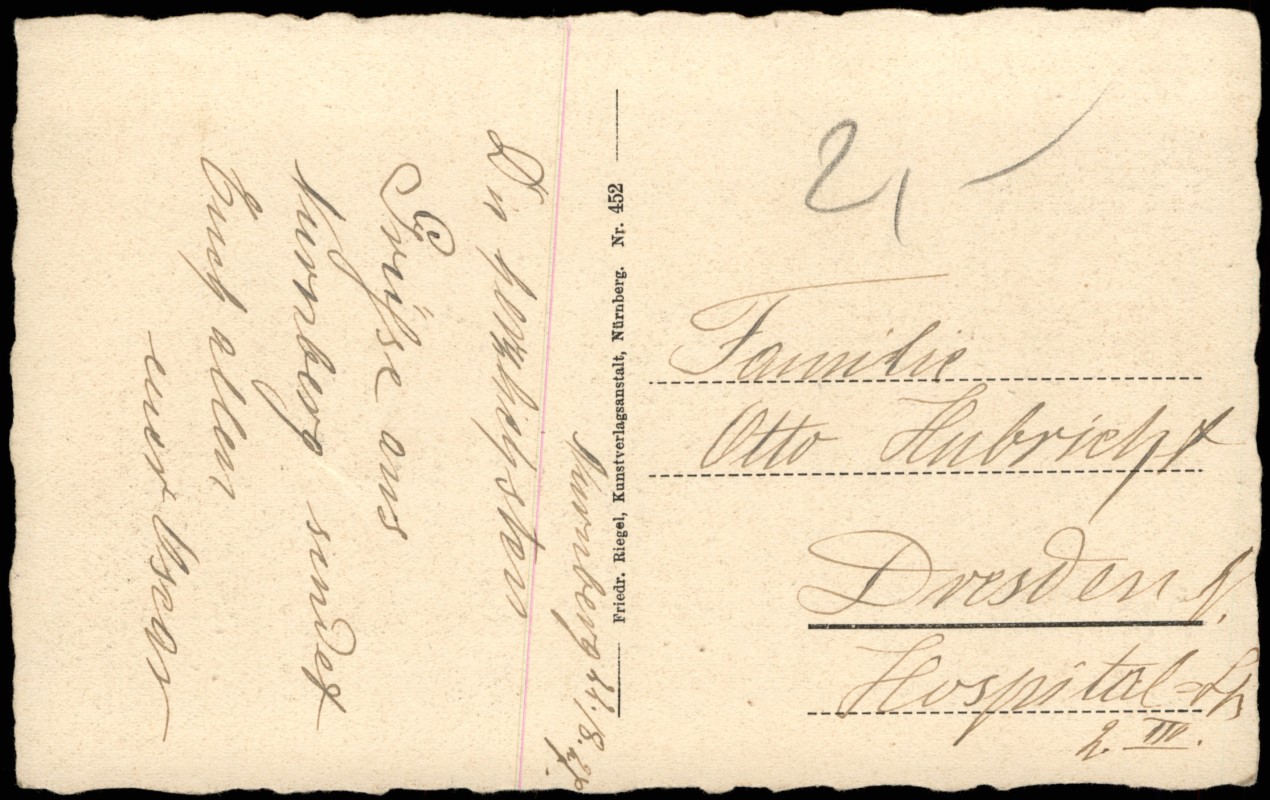 Nürnberg 21./8.27.
Die herzlichsten
Grüsse aus
Nürnberg sendet
Euch allen
euer
Friedr. Riegel, Kunstverlagsanstalt, Nürnberg. Nr. 452
2,-
Familie
Otto Hubricht
Dresden
Hospital-
2. III.